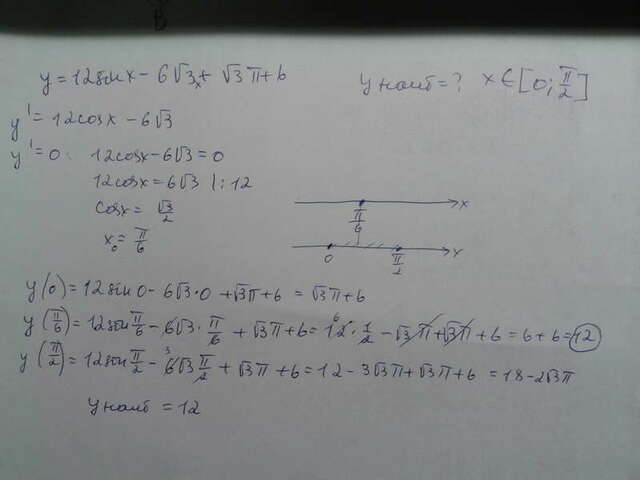 y = 12sinx - 6√3x + √3π + 6    Yнаиб = ? x ∈ [0; π/2]
y' = 12cosx - 6√3
y' = 0: 12cosx - 6√3 = 0
12cosx = 6√3 |: 12
cosx = √3/2
x₀ = π/6
π/6 x
0 π/2 x
y(0) = 12sin0 - 6√3·0 + √3π + 6 = √3π + 6
y(π/6) = 12sin π/6 - 6√3 · π/6 + √3π + 6 = 12 · 1/2 - √3π + √3π + 6 = 6 + 6 = 12
y(π/2) = 12sin π/2 - 6√3 π/2 + √3π + 6 = 12 - 3√3π + √3π + 6 = 18 - 2√3π
Yнаиб = 12